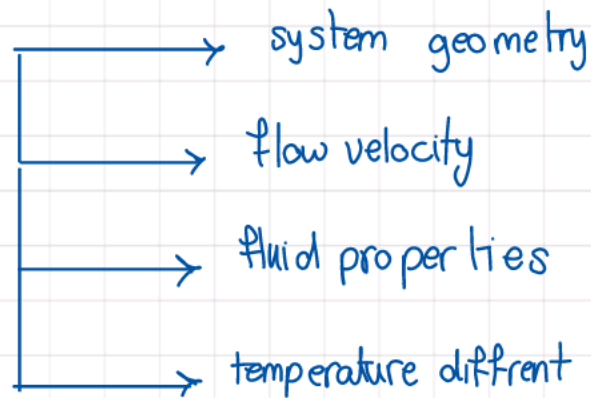 system geometry
flow velocity
fluid properties
temperature diffrent